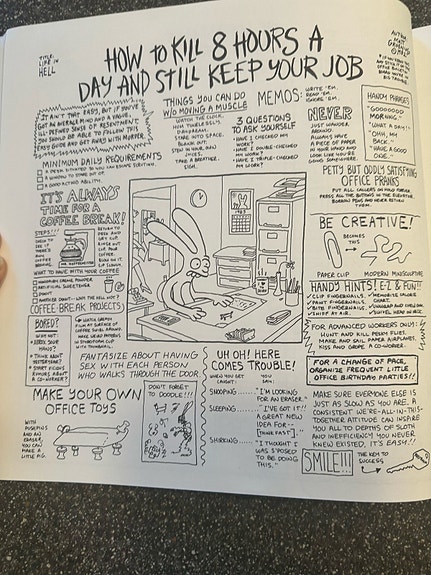 TITLE:
LIFE IN
HELL
HOW TO KILL 8 HOURS A
DAY AND STILL KEEP YOUR JOB
AUTHOR
MATT
IT AIN'T THAT EASY, BUT IF YOU'VE
GOT AN AVERAGE MIND AND A VAGUE,
ILL-DEFINED SENSE OF RESENTMENT
YOU SHOULD BE ABLE TO FOLLOW THIS
EASY GUIDE AND GET AWAY WITH MURDER.
MINIMUM DAILY REQUIREMENTS
A WINDOW TO STARE OUT OF.
A GOOD ACTING ABILITY.
THINGS YOU CAN DO
W/O MOVING A MUSCLE
WATCH THE CLOCK.
DAYDREAM.
STARE INTO SPACE.
BLACK OUT.
TAKE A BREATHER.
SIGH.
MEMOS:
WRITE 'EM.
READ 'EM.
IGNORE 'EM.
3 QUESTIONS
TO ASK YOURSELF
HAVE I CHECKED MY
WORK?
HAVE I DOUBLE-CHECKED
MY WORK?
HAVE I TRIPLE-CHECKED
MY WORK?
NEVER
JUST WANDER
AROUND.
ALWAYS HAVE
A PIECE OF PAPER
IN YOUR HAND AND
LOOK LIKE YOU'RE
GOING SOMEWHERE.
HANDY PHRASES
"GOOOOOOD
MORNING."
"WHAT A DAY!"
"OH, MY
BACK."
"HAVE A GOOD
ONE."
PETTY BUT ODDLY SATISFYING
OFFICE PRANKS
PUT ALL CALLERS ON HOLD FOREVER
PRESS ALL THE BUTTONS IN THE ELEVATOR
BORROW PENS AND NEVER RETURN
THEM.
IT'S ALWAYS
TIME FOR A
COFFEE BREAK!
STEPS!!!
WHAT TO HAVE WITH YOUR COFFEE
ARTIFICIAL SWEETENER
DONUT
ANOTHER DONUT - WHAT THE HELL NOT?
COFFEE BREAK PROJECTS
1983
BE CREATIVE!
BECOMES
THIS
PAPER CLIP
MODERN MINISCULPTURE
HANDY HINTS! EZ & FUN!!
CLIP FINGERNAILS.
PAINT FINGERNAILS.
BITE FINGERNAILS.
SNIFF AT AIR.
MEMORIZE CALORIE
CHART.
SHRUG AND EVEN OUT.
SWIVEL HEAD ON NECK.
FOR ADVANCED WORKERS ONLY:
HUNT AND KILL PESKY FLIES.
MAKE AND SAIL PAPER AIRPLANES.
KISS AND GROPE A CO-WORKER.
BORED?
WHY NOT:
THINK ABOUT
YESTERDAY?
START VICIOUS
RUMORS ABOUT
A CO-WORKER?
FANTASIZE ABOUT HAVING
SEX WITH EACH PERSON
WHO WALKS THROUGH THE DOOR.
UH OH! HERE
COMES TROUBLE!
WHEN YOU GET
CAUGHT:
YOU
SAY:
SNOOPING....."I'M LOOKING
FOR AN ERASER."
SLEEPING....."I'VE GOT IT!! A GREAT
NEW IDEA FOR--
[THINK FAST]."
SHIRKING....."I THOUGHT I
WAS S'POSED
TO BE DOING
THIS."
FOR A CHANGE OF PACE,
ORGANIZE FREQUENT LITTLE
OFFICE BIRTHDAY PARTIES!!
MAKE YOUR OWN
OFFICE TOYS
WITH
PUSHPINS
AND AN
ERASER,
YOU CAN
MAKE A
LITTLE PIG.
DON'T FORGET
TO DOODLE!!!
MAKE SURE EVERYONE ELSE IS
JUST AS SLOW AS YOU ARE. A
CONSISTENT WE'RE-ALL-IN-THIS-
TOGETHER ATTITUDE CAN INSPIRE
YOU ALL TO DEPTHS OF SLOTH
AND INEFFICIENCY YOU NEVER
KNEW EXISTED. IT'S EASY!!
SMILE!!!
THE KEY TO
SUCCESS